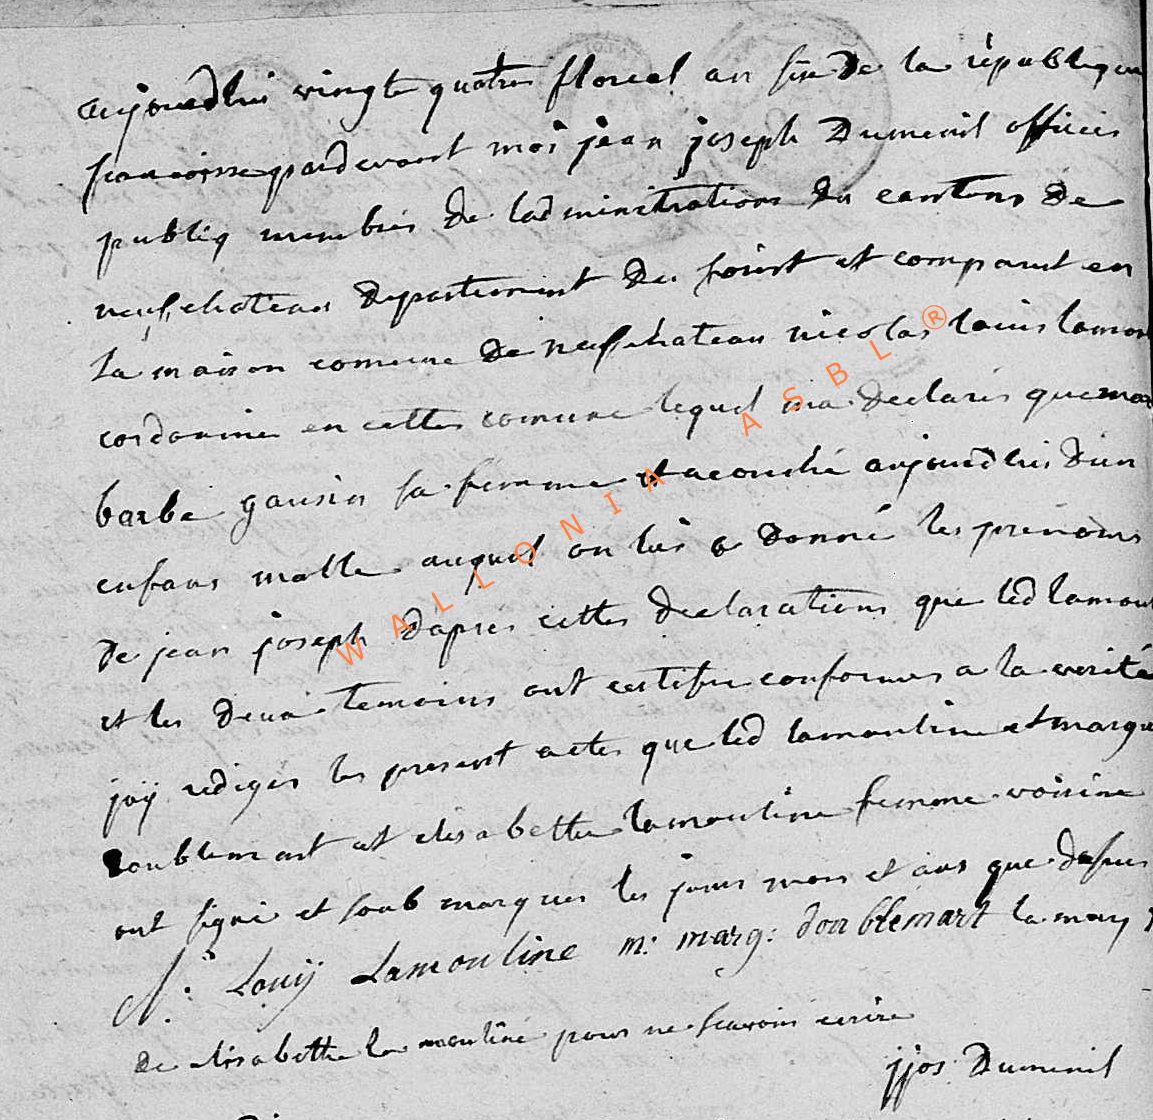 aujourdhui vingte quatre floreal an sixe De la république
francoisse pardevant moi jean joseph Dumenil officier
publiq membres de ladministrations du cantons de
neufchateau departement des foiret et comparut en
la maison comune De neufchateau nicolas louis lamou
cordonnier en cettes comune lequel ma declarés que mar
barbe gausin sa femme et acouché aujourdhui Dun
enfans malle auquel on lui a donné les prenoms
De jean joseph dapres cettes declarations que led lamoul
et les deux temoins ont certifie conformes a la verité
jay redigés les present actes que led lamouline et margue
doublemart et elisabette lamouline femme voisine
ont signé et soub marqués les jours mois et ans que desus
N: Louÿ Lamouline m: marg: doublemart la marq
de elisabette la mouline pour ne scavoir ecrire
jjos Dumenil
WALLONIA ASBL ®